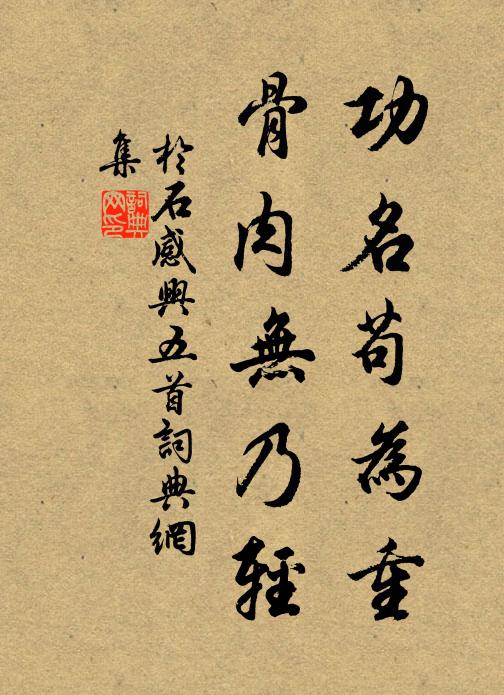 功名苟為重
骨肉無乃輕
於石感興五首詞典網
集
詞典
网印